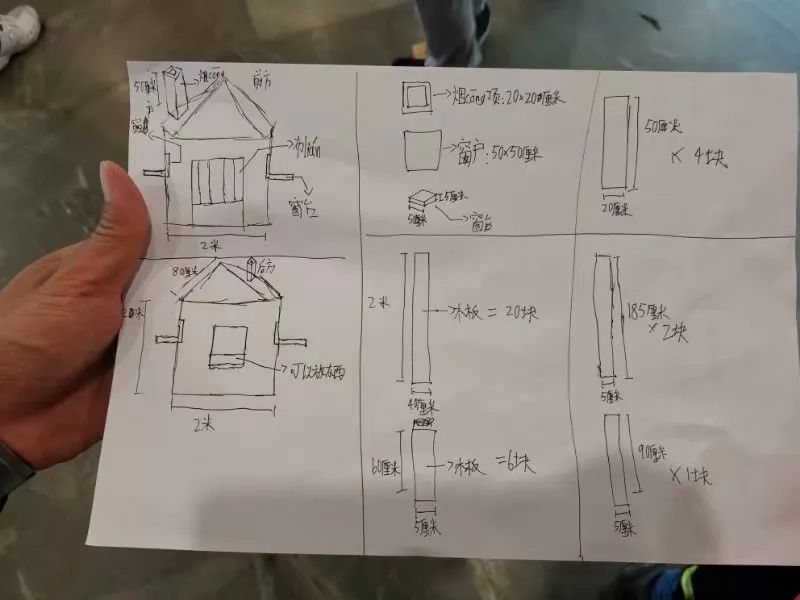 50厘米
烟cōng
前方
窗户
布/lin 
窗台
2米
烟cōng顶:20×20厘米
窗户:50×50厘米
15厘米
5厘米
窗台
50厘米
× 4块
20厘米
80厘米
后方
可以放东西
2米
2米
木板 = 20块
40厘米
60厘米
木板 =6块
5厘米
185厘米
×2块
5厘米
90厘米
×1块
5厘米